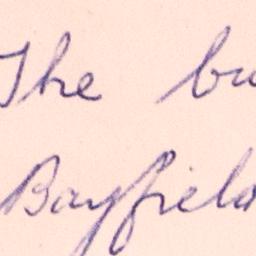 The bu
Bayfield